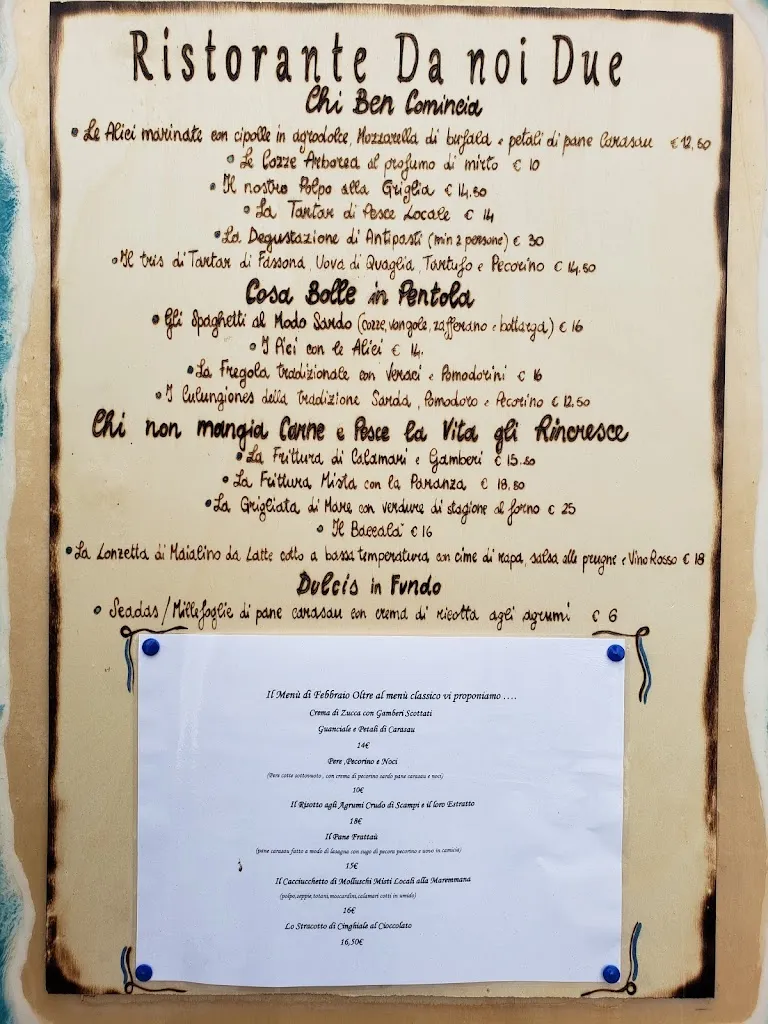 Ristorante Da noi Due
Chi Ben Comincia
• Le Alici marinate con cipolle in agrodolce, Mozzarella di bufala e petali di pane Carasau € 12,50
• Le Cozze Arborea al profumo di mirto € 10
• Il nostro Polpo alla Griglia € 14.50
• La Tartar di Pesce Locale € 14
• La Degustazione di Antipasti (min 2 persone) € 30
• Il tris di Tartar di Fassona, Uova di Quaglia, Tartufo e Pecorino € 14,50
Cosa Bolle in Pentola
• Gli Spaghetti al Modo Sardo (cozze, vongole, zafferano e bottarga) € 16
• I Pici con le Alici € 14.
• La Fregola tradizionale con Veraci e Pomodorini € 16
• I Culungiones della tradizione Sarda, Pomodoro e Pecorino € 12.50
Chi non mangia Carne e Pesce la Vita gli Rincresce
• La Frittura di Calamari e Gamberi € 15.50
• La Frittura Mista con la Paranza € 18,50
• La Grigliata di Mare con verdure di stagione al forno € 25
• Il Baccalà € 16
• La Lonzetta di Maialino da Latte cotto a bassa temperatura con cime di rapa, salsa alle prugne e Vino Rosso € 18
Dulcis in Fundo
• Seadas/Millefoglie di pane carasau con crema di ricotta agli agrumi € 6
Il Menù di Febbraio Oltre al menù classico vi proponiamo ....
Crema di Zucca con Gamberi Scottati
Guanciale e Petali di Carasau
14€
Pere ,Pecorino e Noci
(Pere cotte sottovuoto , con crema di pecorino sardo pane carasau e noci)
10€
Il Risotto agli Agrumi Crudo di Scampi e il loro Estratto
18€
Il Pane Frattaù
(pane carasau fatto a modo di lasagna con sugo di pecora pecorino e uovo in camicia)
15€
Il Cacciucchetto di Molluschi Misti Locali alla Maremmana
(polpo,seppie,totani,moscardini,calamari cotti in umido)
16€
Lo Stracotto di Cinghiale al Cioccolato
16,50€